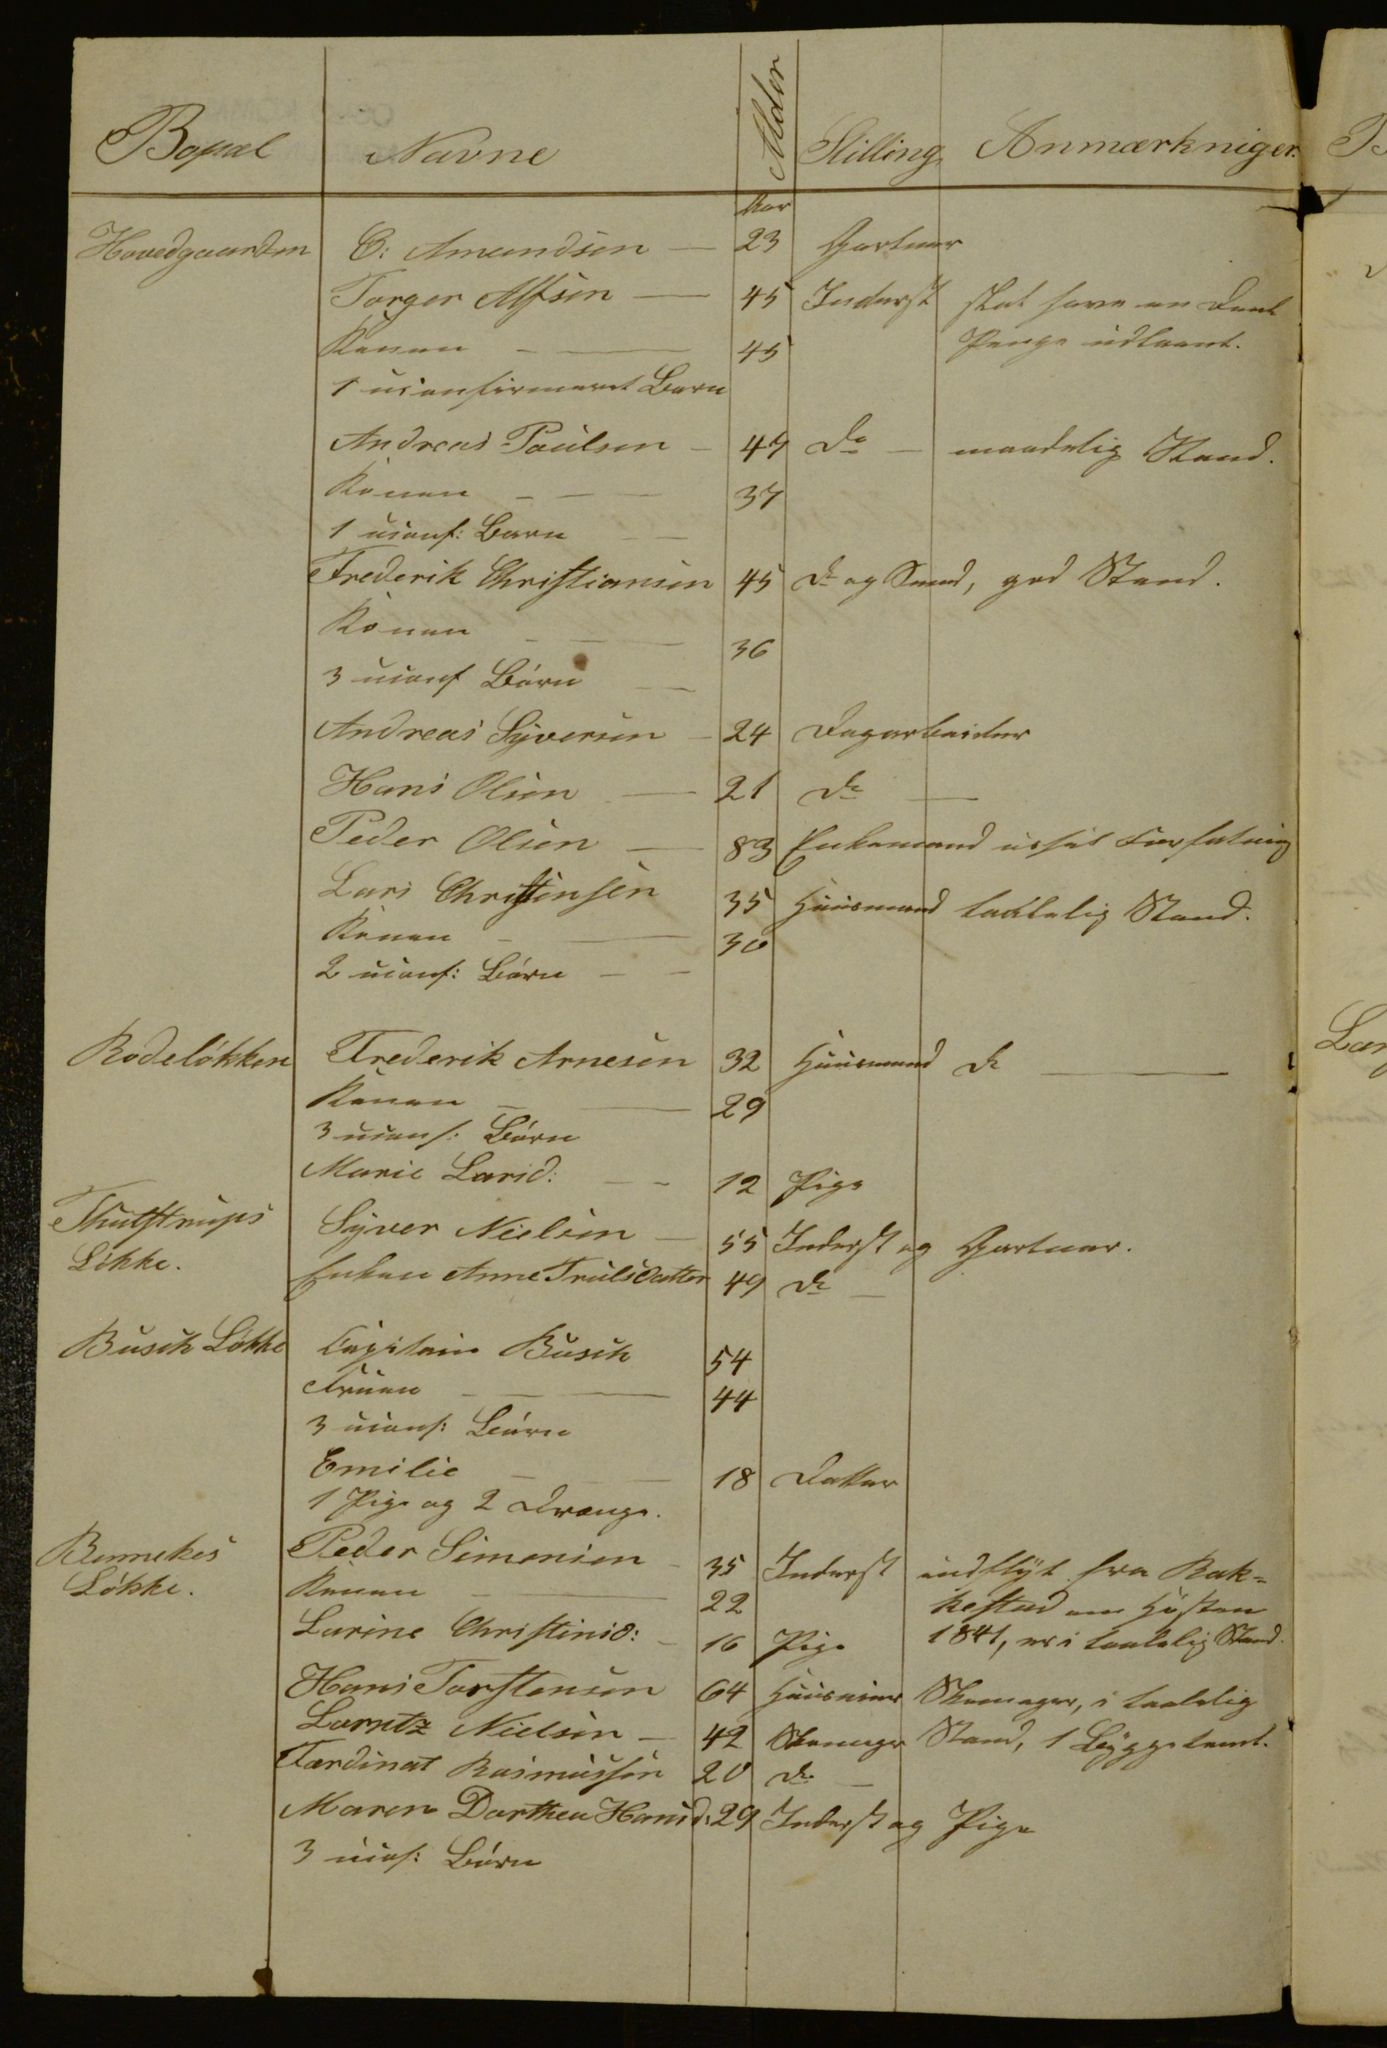 Bopæl Navne Alder Stilling Anmærkniger.
Aar
Hovedgaarden C: Amundsen — 23 Gartner
Torger Alfsen — 45 Inderst skal have en Deel
Konen — 45 Penge udlaant.
1 uconfirmeret Barn
Andreas Paulsen — 47 Do — maadelig Stand.
Konen — 37
1 uconf: Barn
Frederik Christiansen 45 Do og Smed, god Stand.
Konen — 36
3 uconf Börn —
Andreas Syversen — 24 Dagarbeider
Hans Olsen — 21 Do —
Peder Olsen — 83 Enkemand ussel Forfatning
Lars Christensen 35 Huusmand taalelig Stand.
Konen — 30
2 uconf: Börn —
Rodelökken Frederik Arnesen 32 Huusmand Do —
Konen — 29
3 uconf: Börn
Marie Larsd: — 12 Pige
Thulstrups Syver Nielsen — 55 Inderst og Gartner.
Lökke. Enken Anne Trulsdatter 49 Do —
Busch Lökke Capitain Busch 54
Fruen — 44
3 uconf: Börn
Emilie — 18 Datter
1 Pige og 2 Drenge.
Bennekes Peder Simensen — 35 Inderst indflyt fra Bak-
Lökke. Konen — 22 kestad om Hösten
Larine Christensd: — 16 Pige 1841, er i taalelig Stand.
Hans Torstensen 64 Huuseier Skomager, i taalelig
Lorntz Nielsen — 42 Skomager Stand, 1 Bygge tomt.
Ferdinat Rasmussen 20 Do —
Maren Dorthea Hansd: 29 Inderst og Pige
3 uconf: Börn